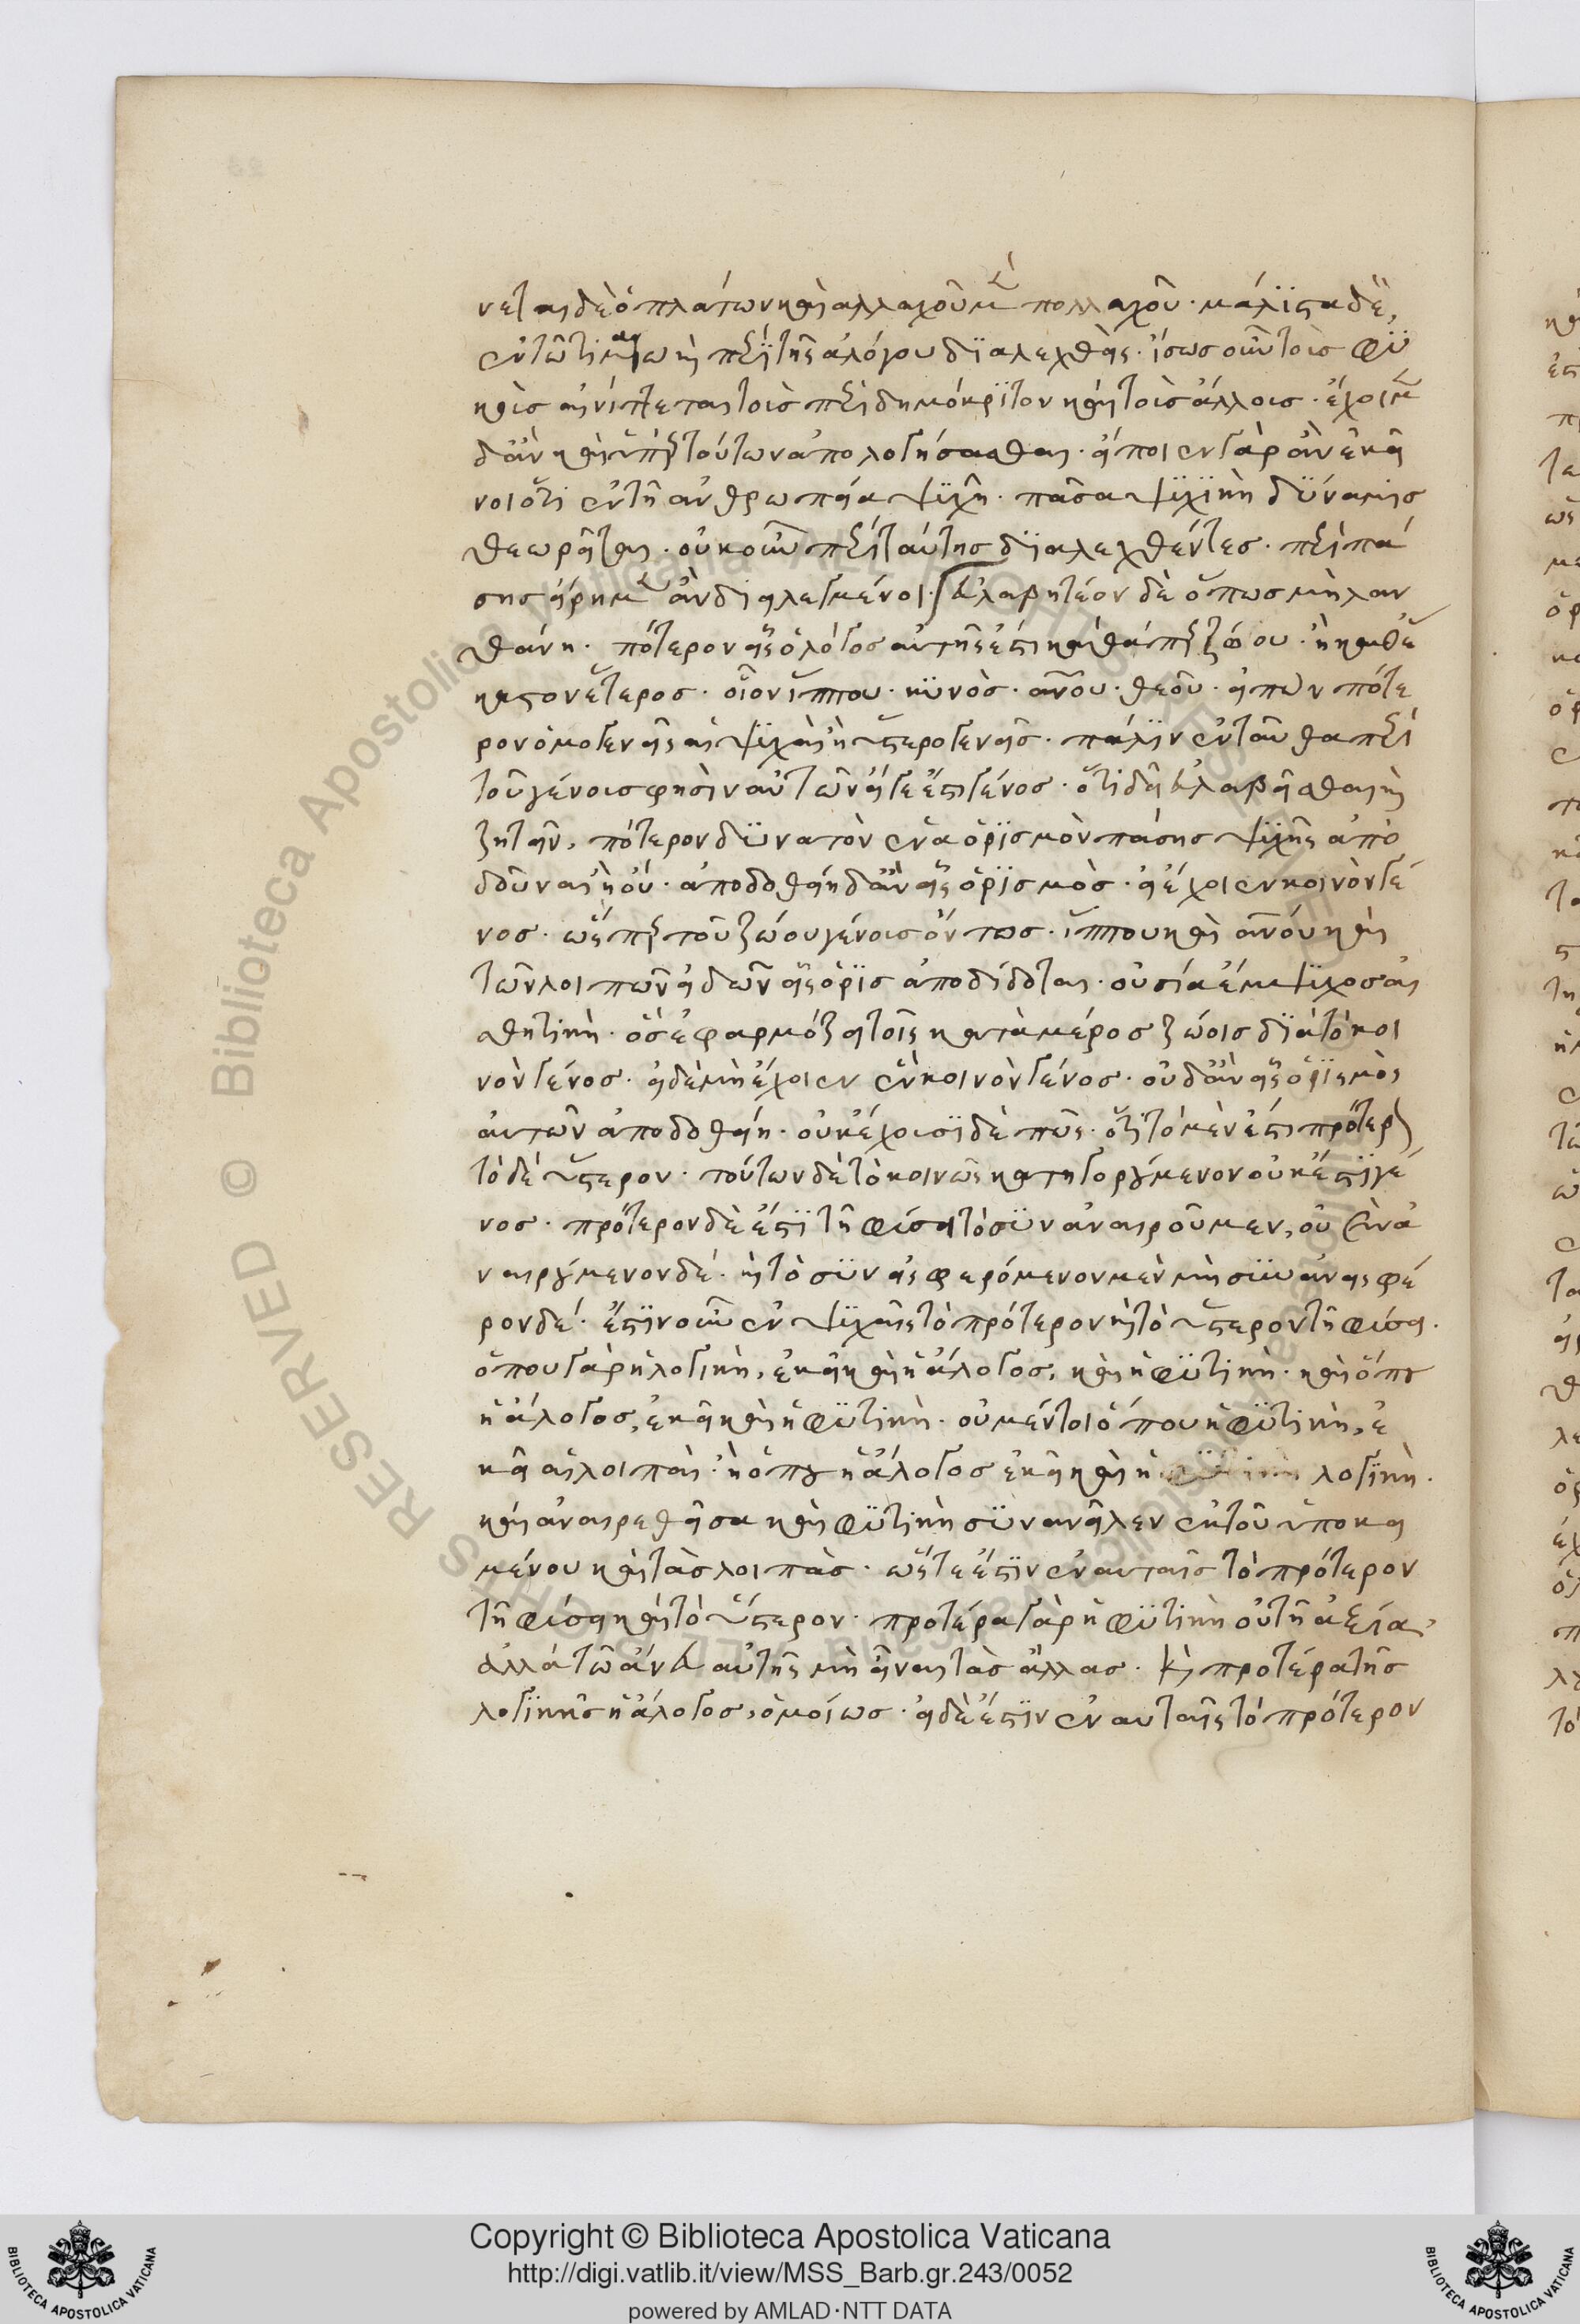 νεται δὲ ὁ πλάτων καὶ ἀλλαχοῦ μὲν πολλαχοῦ· μάλϊστα δὲ,
ἐν τῶ τιμαίω καὶ περὶ τῆς ἀλόγου δϊαλεχθείς· ἴσως οὖν τοῖς φϋ
κοῖς αἰνίττεται τοῖς περὶ δημόκρϊτον καὶ τοῖς ἄλλοις· ἔχοιμεν
δἂν καὶ ὑπὲρ τούτων ἀπολογήσασθαι· εἴποιεν γὰρ ἂν ἐκεῖ
νοι ὅτι ἐν τῆ ἀνθρωπεία ψϋχῆ· πᾶσα ψϋχϊκὴ δϋναμις
θεωρεῖται· οὐκοῦν περὶ ταύτης δϊαλεχθέντες· περὶ πά
σης εἴημεν ἂν διειλεγμένοι· εὐλαβητέον δὲ ὅπως μὴ λαν
θάνη· πότερον εἷς ὁ λόγος αὐτῆς ἐστι καθάπερ ζώου· ἢ καθ' ἕ
καστον ἕτερος· οἷον ἵππου· κϋνὸς· ἀνου· θεοῦ· εἰπὼν πότε
ρον ὁμογενεῖς αἱ ψϋχαὶ ἢ ἑτερογενεῖς· πάλϊν ἐνταῦθα περὶ
τοῦ γένους φησὶν αὐτῶν εἴγε ἔστι γένος· ὅτι δεῖ εὐλαβεῖσθαι καὶ
ζητεῖν, πότερον δϋνατὸν ἕνα ὁρϊσμὸν πάσης ψϋχῆς ἀπο
δοῦναι ἢ οὔ· ἀποδοθείη δἂν εἷς ὁρϊσμὸς· εἰ ἔχοιεν κοινὸν γέ
νος· ὥσπερ τοῦ ζώου γένους ὄντος· ἵππου καὶ ἀνου καὶ
τῶν λοιπῶν εἰδῶν εἷς ὁρϊς ἀποδίδοται· οὐσία ἔμψϋχος αἰ
σθητικὴ· ὃς ἐφαρμόζει τοῖς κατὰ μέρος ζώοις δϊὰ τὸ κοι
νὸν γένος· εἰ δὲ μὴ ἔχοιεν ἓν κοινὸν γένος· οὐδἂν εἷς ὁρϊσμὸς
αὐτῶν ἀποδοθείη· οὐκ ἔχουσϊ δὲ πῶς· ὅτι τὸ μὲν ἐστι πρότερον
τὸ δὲ ὕστερον· τούτων δὲ τὸ κοινῶς κατηγορούμενον οὐκ ἔστϊ γέ
νος· πρότερον δὲ ἐστϊ τῆ φύσει τὸ σϋναναιροῦν μεν, οὐ συνα
ναιρούμενον δέ· ἢ τὸ σϋνεισφερόμενον μὲν μὴ σϋνεισφέ
ρον δέ· ἔστϊν οὖν ἐν ψϋχαῖς τὸ πρότερον καὶ τὸ ὕστερον τῆ φύσει·
ὅπου γὰρ ἡ λογικὴ, ἐκεῖ καὶ ἡ ἄλογος, καὶ ἡ φϋτικὴ· καὶ ὅπου
ἡ ἄλογος, ἐκεῖ καὶ ἡ φϋτικὴ· οὐ μέντοι ὅπου ἡ φϋτικὴ, ἐ
κεῖ αἱ λοιπαί· ἢ ὅπου ἡ ἄλογος ἐκεῖ καὶ ἡ λογϊκὴ·
καὶ ἀναιρεθεῖσα καὶ φϋτικὴ σϋνανεῖλεν ἐκ τοῦ ὑποκει
μένου καὶ τὰς λοιπὰς· ὥστε ἔστϊν ἐν αὐταῖς τὸ πρότερον
τῆ φύσει καὶ τὸ ὕστερον· προτέρα γὰρ ἡ φϋτικὴ οὐ τῆ ἀξία,
ἀλλὰ τῶ ἄνευ αὐτῆς μὴ εἶναι τὰς ἄλλας· καὶ προτέρα τῆς
λογϊκῆς ἡ ἄλογος, ὁμοίως· εἰ δὲ ἔστϊν ἐν αὐταῖς τὸ πρότερον
RESERVED © Biblioteca Apostolica Vaticana
Copyright © Biblioteca Apostolica Vaticana
http://digi.vatlib.it/view/MSS_Barb.gr.243/0052
powered by AMLAD·NTT DATA
BIBLIOTECA APOSTOLICA VATICANA
BIBLIOTECA APOSTOLICA VATICANA